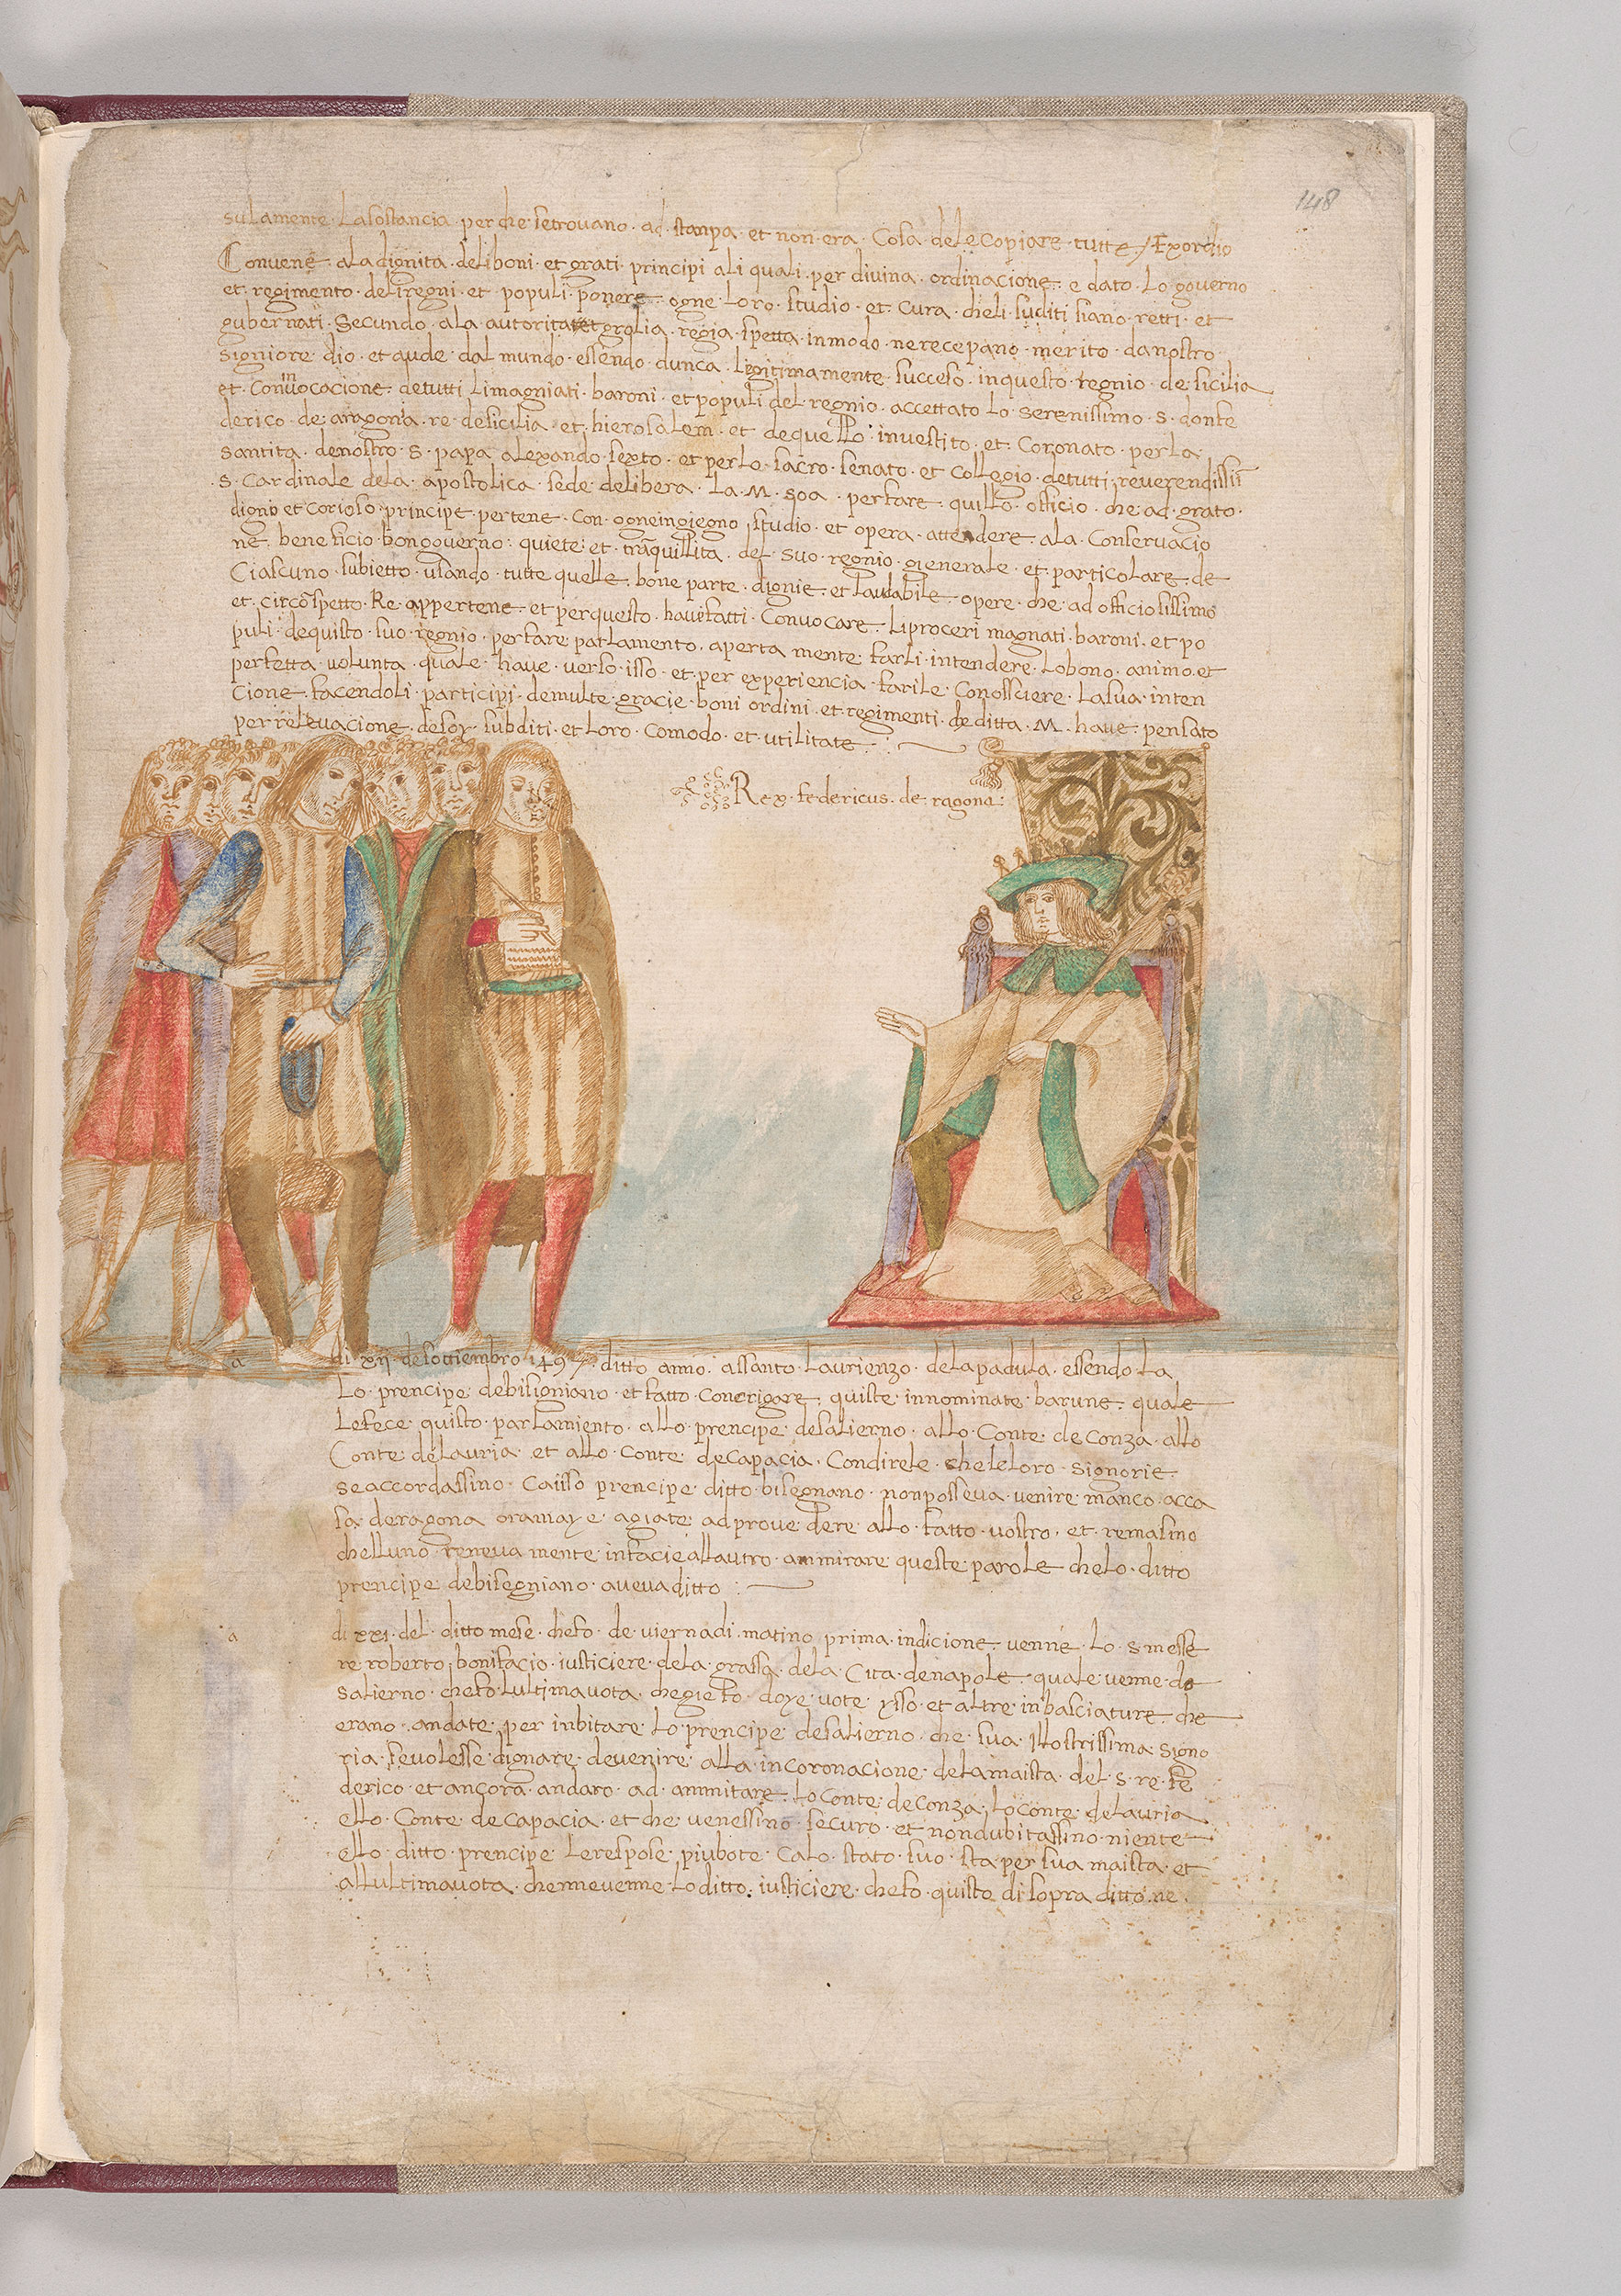 148
sulamente · Lasostancia · perche setrovano · ad · stanpa · et non era · Cosa · dele Copiare · tutte / Exordio
Convene · ala dignita · deli boni · et grati · principi ali quali · per divina · ordinacione · e dato · Lo governo
et · regimento · deli regni · et populi · ponere · ogne · Loro · studio · et Cura · cheli suditi siano · retti · et
gubernati · Secundo · ala autorita et grolia · regia · spetta · inmodo · ne recepano · merito · danostro
Signiore dio · et aude · dal mundo · essendo · dunca · Legitimamente · succeso · inquesto · regnio · de sicilia
et · Convocacione · detutti Limagniati · baroni · et populi del · regnio · accettato Lo serenissimo · s · donfe
derico · de aragona · re · desicilia · et · hierosalem · et dequello · investito · et · Coronato · perla
Santita · denostro · S · papa · alexando · sexto · et perlo · sacro · senato · et Collegio · detutti reverendissi
· S · Cardinale dela · apostolica · sede · delibera · La · M · soa · perfare · quillo · officio · che ad · grato ·
digno et Corioso · principe · pertene · Con · ogneingiegno studio · et opera · attendere · ala · Conservacio
ne · beneficio · bongoverno · quiete · et · tranquillita · del · suo · regnio · gienerale · et particolare · de
Ciascuno · subietto · usando · tutte quelle · bone parte · dignie · et Laudabile · opere · che ad officiosissimo
et · circospetto · Re · appertene · et perquesto · have fatti · Convocare · Liproceri magnati · baroni · et po
puli · dequisto · suo · regnio · perfare parlamento · aperta mente · farli · intendere · Lobono · animo et
perfetta · volunta · quale · have · verso · isso · et · per experiencia · farile · Conossciere · Lasua · inten
cione · facendoli · participi · demulte · gracie · boni ordini · et · regimenti · che ditta · M · have · pensato
per relevacione · desoy · subditi · et Loro · Comodo · et · utilitate ·
Rex · federicus · de · ragona
a di xii desottiembro 1497 · ditto anno · assanto · Laurienzo · delapadula · essendo La
Lo · prencipe · debisigniano · et fatto · Concrigare · quiste · innominate · barune · quale
Lefece quisto · parlamiento · allo · prencipe · desalierno · allo · Conte · de Conza · allo
Conte · delauria · et allo · Conte · de Capacia · Condirele · cheleloro · Signorie
seaccordassino · Caisso prencipe · ditto · bisegnano · nonposseva · venire · manco · acca
sa · deragona oramay e · agiate · adprovedere · allo · fatto · vostro · et · remasino
chelluno teneva mente infacieallautro · ammirare queste parole · chelo · ditto
prencipe debisegniano · aveva ditto :
a di xxi · del · ditto mese · chefo · de · viernadi · matino prima · indicione · venne · Lo · s messe
re roberto bonifacio · iusticiere · dela · grassa · dela · Cita · denapole · quale · venne · da
Salierno · chefo · Lultima vota · chegie fo · doye · vote · ysso · et altre · inbasciature · che
erano · andate · per inbitare · Lo prencipe desalierno · che · sua · Illostrissima · Signo
ria · sevolesse · dignare · devenire · alla · incoronacione · delamaista · del · s · re · fe
derico · et ancora · andaro · ad · ammitare · Lo Conte · de Conza · Lo Conte · delauria
ello · Conte · de Capacia · et che · venessino · securo · et nondubitassino · niente
ello · ditto · prencipe · Lerespose · piubote · Calo · stato · suo · sta per sua maista · et
allultima vota · chennevenne · Lo ditto · iusticiere · chefo · quisto di sopra ditto · ne ·